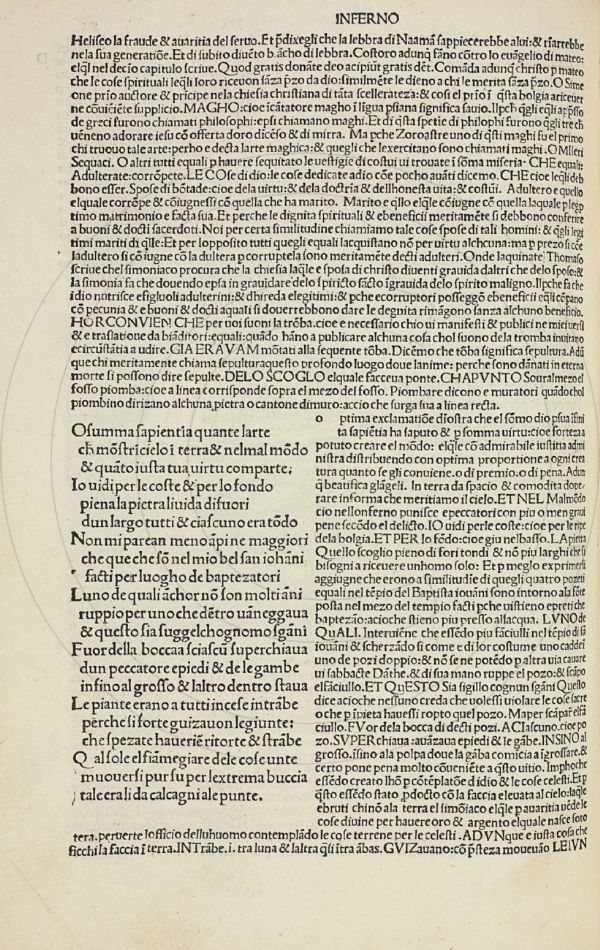 INFERNO
Heliseo la fraude & auaritia del seruo. Et p̃dixegli che la lebbra di Naamã sappiecerebbe alui: & rĩarrebbe
nela sua generatiõe. Et di subito diuẽto biãcho di lebbra. Costoro adunq̃ fano cõtro lo euãgelio di mateo:
elq̃l nel decio capitulo scriue. Quod gratis donate deo acipiut gratis date. Comãda adunq̃ christo p mateo
che le cose spirituali leq̃li loro riceuon sãza p̃zo da dio: similmẽte le dieno a chi le merita sãza p̃zo. O Simo
one prio auctore & prĩcipe nela chiesa christiana di tãta scellerateza: & cosi el prio ĩ q̃sta bolgia ariceuer
ne cõuiẽiẽte supplicio. MAGHO: cioe ĩcãtatore magho ĩ lĩgua p̃siana significa sauio. Ilpch q̃gli eq̃li ap̃sso
de greci furono chiamati philosophi: epsi chiamano maghi. Et di q̃sta spetie di philophi furono q̃gli tre ch
uẽneno adorare iesu cõ offerta doro dicẽso & di mirra. Ma pche Zoroastre uno di q̃sti maghi fu el primo
chi truouo tale arte: perho e decta larte maghica: & quegli che lexercitano sono chiamati maghi. O Miseri
Sequaci. O altri tutti equali p hauere sequitato le uestigie di costui ui trouate ĩ sõma miseria. CHE equali:
Adulterate: corrõpete. LE COse di dio: le cose dedicate adio cõe pocho auãti dicemo. CHE cioe leq̃li deb
bono esser. Spose di bõtade: cioe dela uirtu: & dela doctria & dellhonesta uita: & costũi. Adultero e quello
elquale corrõpe & cõiugnessi cõ quella che ha marito. Marito e q̃llo elq̃le cõiugne cõ quella laquale p legi
timo matrimonio e facta sua. Et perche le dignita spirituali & ebeneficii meritamẽte si debbono conferire
a buoni & docti sacerdoti. Noi per certa similitudine chiamiamo tale cose spose di tali homini: & q̃gli legi
timi mariti di q̃lle: Et per lopposito tutti quegli equali lacquistano nõ per uirtu alchuna: ma p prezo si cõe
ladultero si cõ iugne cõ la dultera p corruptela sono meritamẽte decti adulteri. Onde laquinate Thomaso
scriue chel simoniaco procura che la chiesa laq̃le e spola di christo diuenti grauida daltri che delo sposo: &
la simonia fa che douendo epsa in grauidare delo spiricto sãcto ĩgrauida delo spirito maligno. Ilpche fa che
idio notrisce esigliuoli adulterini: & dhireda elegitimi: & pche ecorruptori posseggõ ebeneficii eq̃li cõpano
cõ pecunia & e buoni & docti aquali si douerrebbono dare le degnita rimãgono sanza alchuno beneficio.
HOR CONVIEN CHE per uoi suoni la trõba. cioe e necessario chio ui manifesti & publici ne miei uersi
& e traslatione da biãditori: equali: quãdo hãno a publicare alchuna cosa chol suono de la tromba inuitano
ecircũstãtia a udire. GIA ERAVAM mõtati alla sequente tõba. Dicẽmo che tõba significa sepultura. Adũ
que chi meritamente chiama sepultura questo profondo luogo doue lanime: perche sono dãnati in eterna
morte si possono dire sepulte. DELO SCOGLO elquale faceua ponte. CHAPVNTO Souralmezo el
fosso piomba: cioe a linea corrisponde sopra el mezo del fosso. Piombare dicono e muratori quãdo chol
piombino dirizano alchuna pietra o cantone dimuro: accio che surga sua a linea recta.
O summa sapientia quante larte
ch mostri cielo ĩ terra & nel mal mõdo
& quãto iusta tua uirtu comparte;
Io uidi per le coste & per lo fondo
piena la pietra liuida di fuori
dun largo tutti & ciascuno era tõdo
Non mi parean meno ãpi ne maggiori
che que che sõ nel mio bel san iohãni
facti per luogho de baptezatori
Luno de quali ãchor nõ son molti ãni
ruppio per uno che dẽtro uãneggaua
& questo sia suggel chognomo sgãni
Fuor della bocca a sciascũ superchiaua
dun peccatore epiedi & de le gambe
infino al grosso & laltro dentro staua
Le piante erano a tutti incese intrãbe
perche si forte guizauon legiunte:
che spezate haueriẽ ritorte & strãbe
Q̃ual sole el fiãmegiare dele cose unte
muouersi pur su per lextrema buccia
tale era li da calcagni ale punte.
o ptima exclamatiõe diõstra che el sõmo dio p sua ĩfini
ta sapiẽtia ha saputo & p somma uirtu: cioe forteza
potuto creare el mõdo: elq̃le cõ admirabile iustitia admi
nistra distribuendo con optima proportione a ogni crea
tura quanto se gli conuiene. o di premio. o di pena. Adun
q̃ beatifica glãgeli. In terra da spacio & comodita dope
rare informa che meritiamo il cielo. ET NEL Mal mõdo
cio nellonferno punisce epeccatori con piu o men graui
pene secõdo el delicto. IO uidi perle coste: cioe per le ripe
de la bolgia. ET PER lo fõdo: cioe giu nel basso. LA pietra
Quello scoglio pieno di fori tondi & nõ piu larghi che si
bisogni a riceuere unhomo solo: Et p meglo exprimersi
aggiugne che erono a similitudie di quegli quatro pozeti
equali nel tẽpio del Baptista iouãni sono intorno ala fõte
posta nel mezo del tempio facti pche uistieno epreti che
baptezão: acioche stieno piu presso allacqua. LVNO de
QuALI. Interuiẽne che essẽdo piu fãciulli nel tẽpio di sã
iouãni & scherzãdo si come e di lor costume uno caddeĩ
uno de pozi doppio: & nõ se ne potẽdo p altra uia cauare
ui sabbacte Dãthe. & di sua mano ruppe el pozo: & scãpo
el fãciullo. ET QuESTO Sia sigillo cognun sgãni Questo
dice acioche nessuno creda che uolessi uiolare le cose sacre
o che p ĩpieta hauessi ropto quel pozo. Ma per scãpar el fã
ciullo. FVOr dela bocca di decti pozi. A Ciascuno. cioe po
zo. SVPERchiaua: auãzaua epiedi & le gãbe. INSINO al
grosso. ĩsino ala polpa doue la gãba comicia a igrossare. &
certo pone pena molto cõueniẽte a q̃sto uitio. Impoche
essẽdo creato lhõ p cõtẽplatõe di idio & le cose celesti. Et p
q̃sto essẽdo stato p̃docto cõ la faccia eleuata al cielo: laq̃le
ebruti chinõ ala terra el simõiaco elq̃le p auaritia uẽde le
cose diuine per hauere oro & argento elquale nasce soto
tera. peruerte lofficio dellhuomo contemplãdo le cose terrene per le celesti. ADVNque e iusta cosa che
ficchi la faccia ĩ terra. INTrãbe. i. tra luna & laltra q̃si ĩtra ãbas. GVIZauano: cõ p̃steza moueuão LE IVN